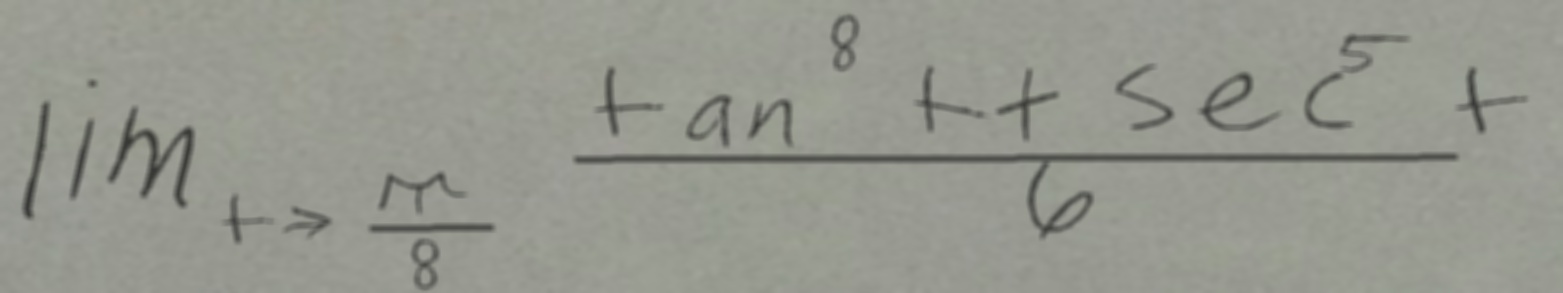 \lim_{t \to \frac{\pi}{8}} \frac{\tan^8 t + \sec^5 t}{6}